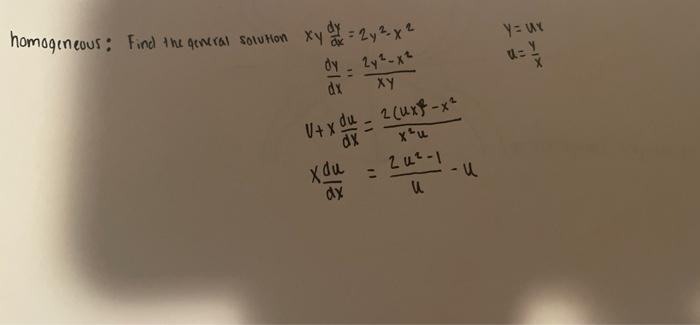 homogeneous: Find the general solution xy dy/dx = 2y²-x²
y=ux
dy/dx = 2y²-x²/xy
u=y/x
U+x du/dx = 2(ux)²-x²/x²u
x du/dx = 2u²-1/u - u